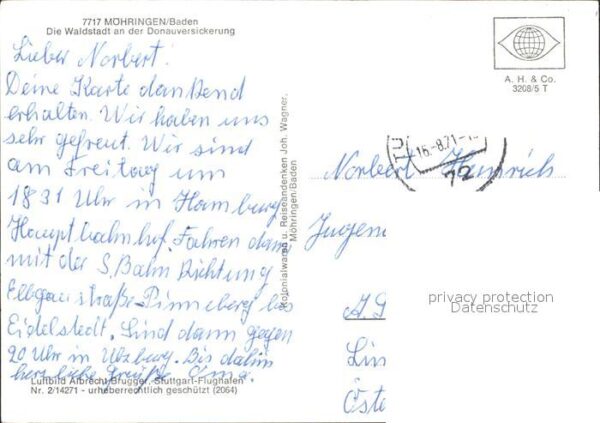 7717 MÖHRINGEN/Baden
Die Waldstadt an der Donauversickerung
Lieber Norbert!
Deine Karte dankend
erhalten. Wir haben uns
sehr gefreut. Wir sind
am Freitag um
1831 Uhr in Hamburg
Hauptbahnhof. Fahren dann
mit der S.Bahn Richtung
Elbgaustraße-Pinneberg bis
Eidelstedt. Sind dann gegen
20 Uhr in Ulzburg. Bis dahin
herzliche Grüße Oma.
Luftbild Albrecht Brugger, Stuttgart-Flughafen
Nr. 2/14271 - urheberrechtlich geschützt (2064)
Kolonialwaren u. Reiseandenken Joh. Wagner,
Möhringen/Baden
A. H. & Co.
3208/5 T
TU
16.-8.71-1
12
Norbert Heinrich
Jugen
privacy protection
Datenschutz
A
Lin
Öste